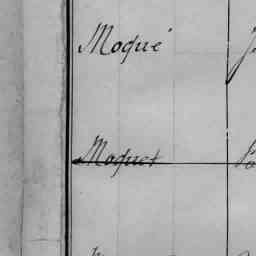 Moqué
Moquet